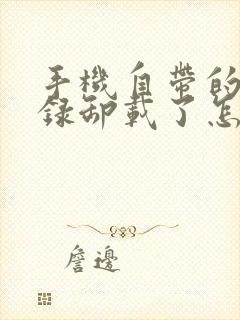 手機自帶的
錄卸載了怎
詹邊